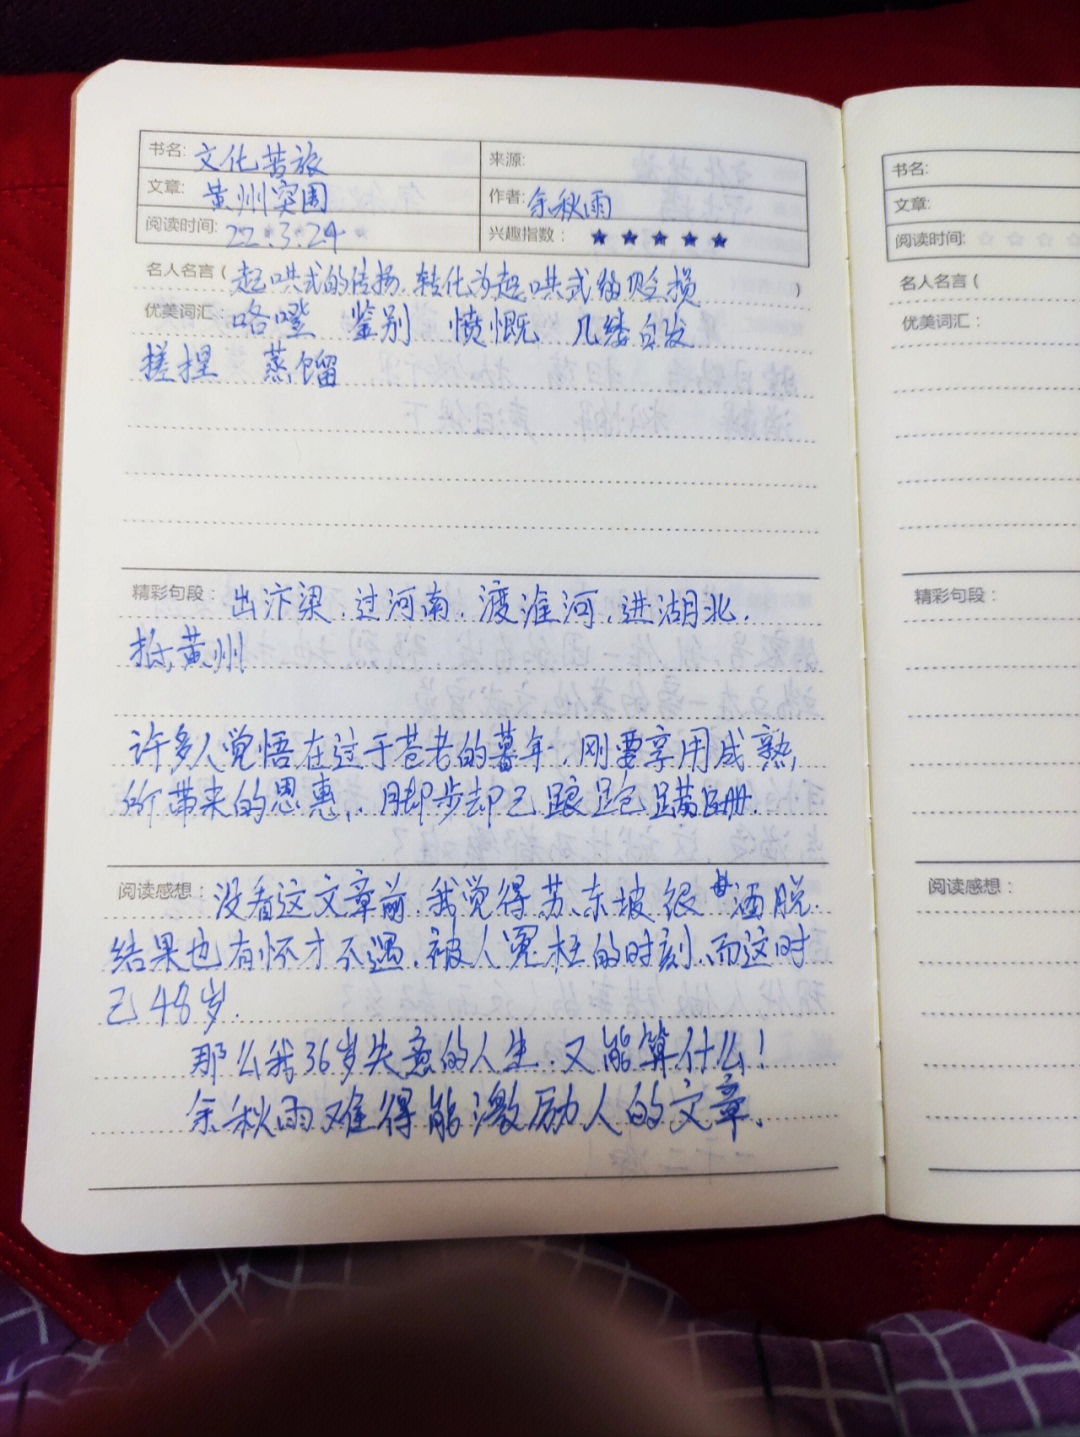 书名: 文化苦旅
来源:
文章: 黄州突围
作者: 余秋雨
阅读时间: 22.3.24
兴趣指数: ★★★★★
名人名言( 起哄式的传扬.转化为起哄式的贬损 )
优美词汇: 咯噔 鉴别 愤慨 几缕白发
搓捏 蒸馏
精彩句段: 出汴梁.过河南.渡淮河.进湖北.
抵黄州
许多人觉悟在过于苍老的暮年.刚要享用成熟
所带来的恩惠,.脚步却已踉跄蹒跚.
阅读感想: 没看这文章前.我觉得苏东坡很洒脱.
结果也有怀才不遇.被人冤枉的时刻.而这时
已48岁.
那么我36岁失意的人生.又能算什么!
余秋雨难得能激励人的文章.
书名:
文章:
阅读时间: ☆☆☆☆
名人名言(
优美词汇:
精彩句段:
阅读感想: